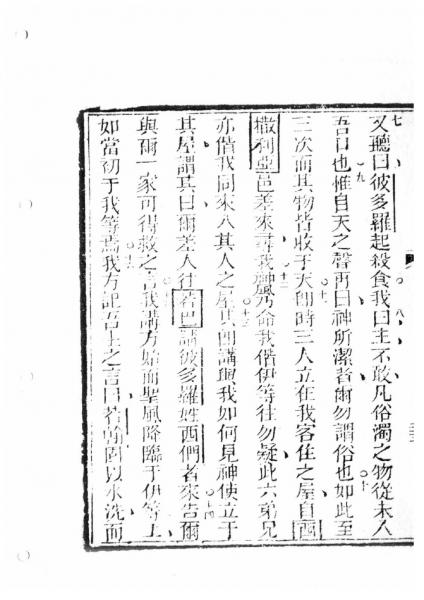 七又聽曰彼多羅起殺食我曰主不敢凡俗濁之物從未入
吾口也惟自天之聲再曰神所潔者爾勿謂俗也如此至
三次而其物皆收于天卽時三人立在我客住之屋自西
撒利亞邑差來尋我神風乃命我偕伊等往勿疑此六弟兄
亦偕我同來入其人之屋其卽講與我如何見神使立于
其屋謂其曰爾差人往若巴請彼多羅姓西們者來告爾
與爾一家可得救之言我講方始而聖風降臨于伊等上
如當初于我等焉我方記吾主之言曰若翰固以水洗而